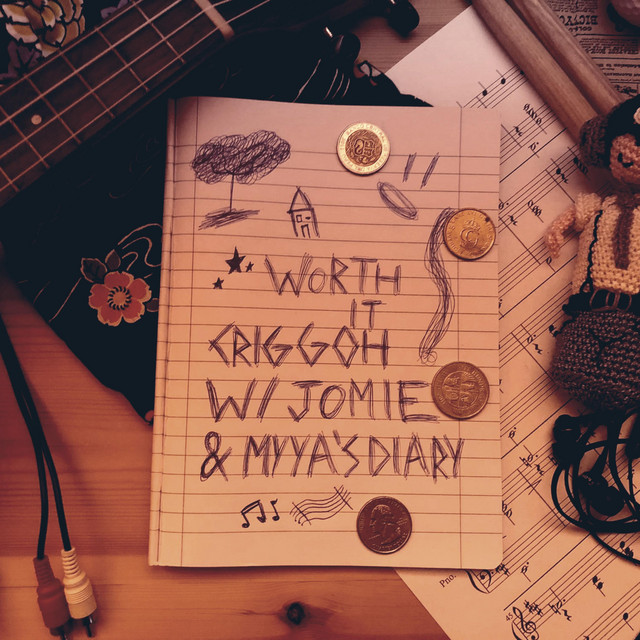 WORTH
IT
CRIGGOH
W/ JOMIE
& MYYA'S DIARY
Pno.